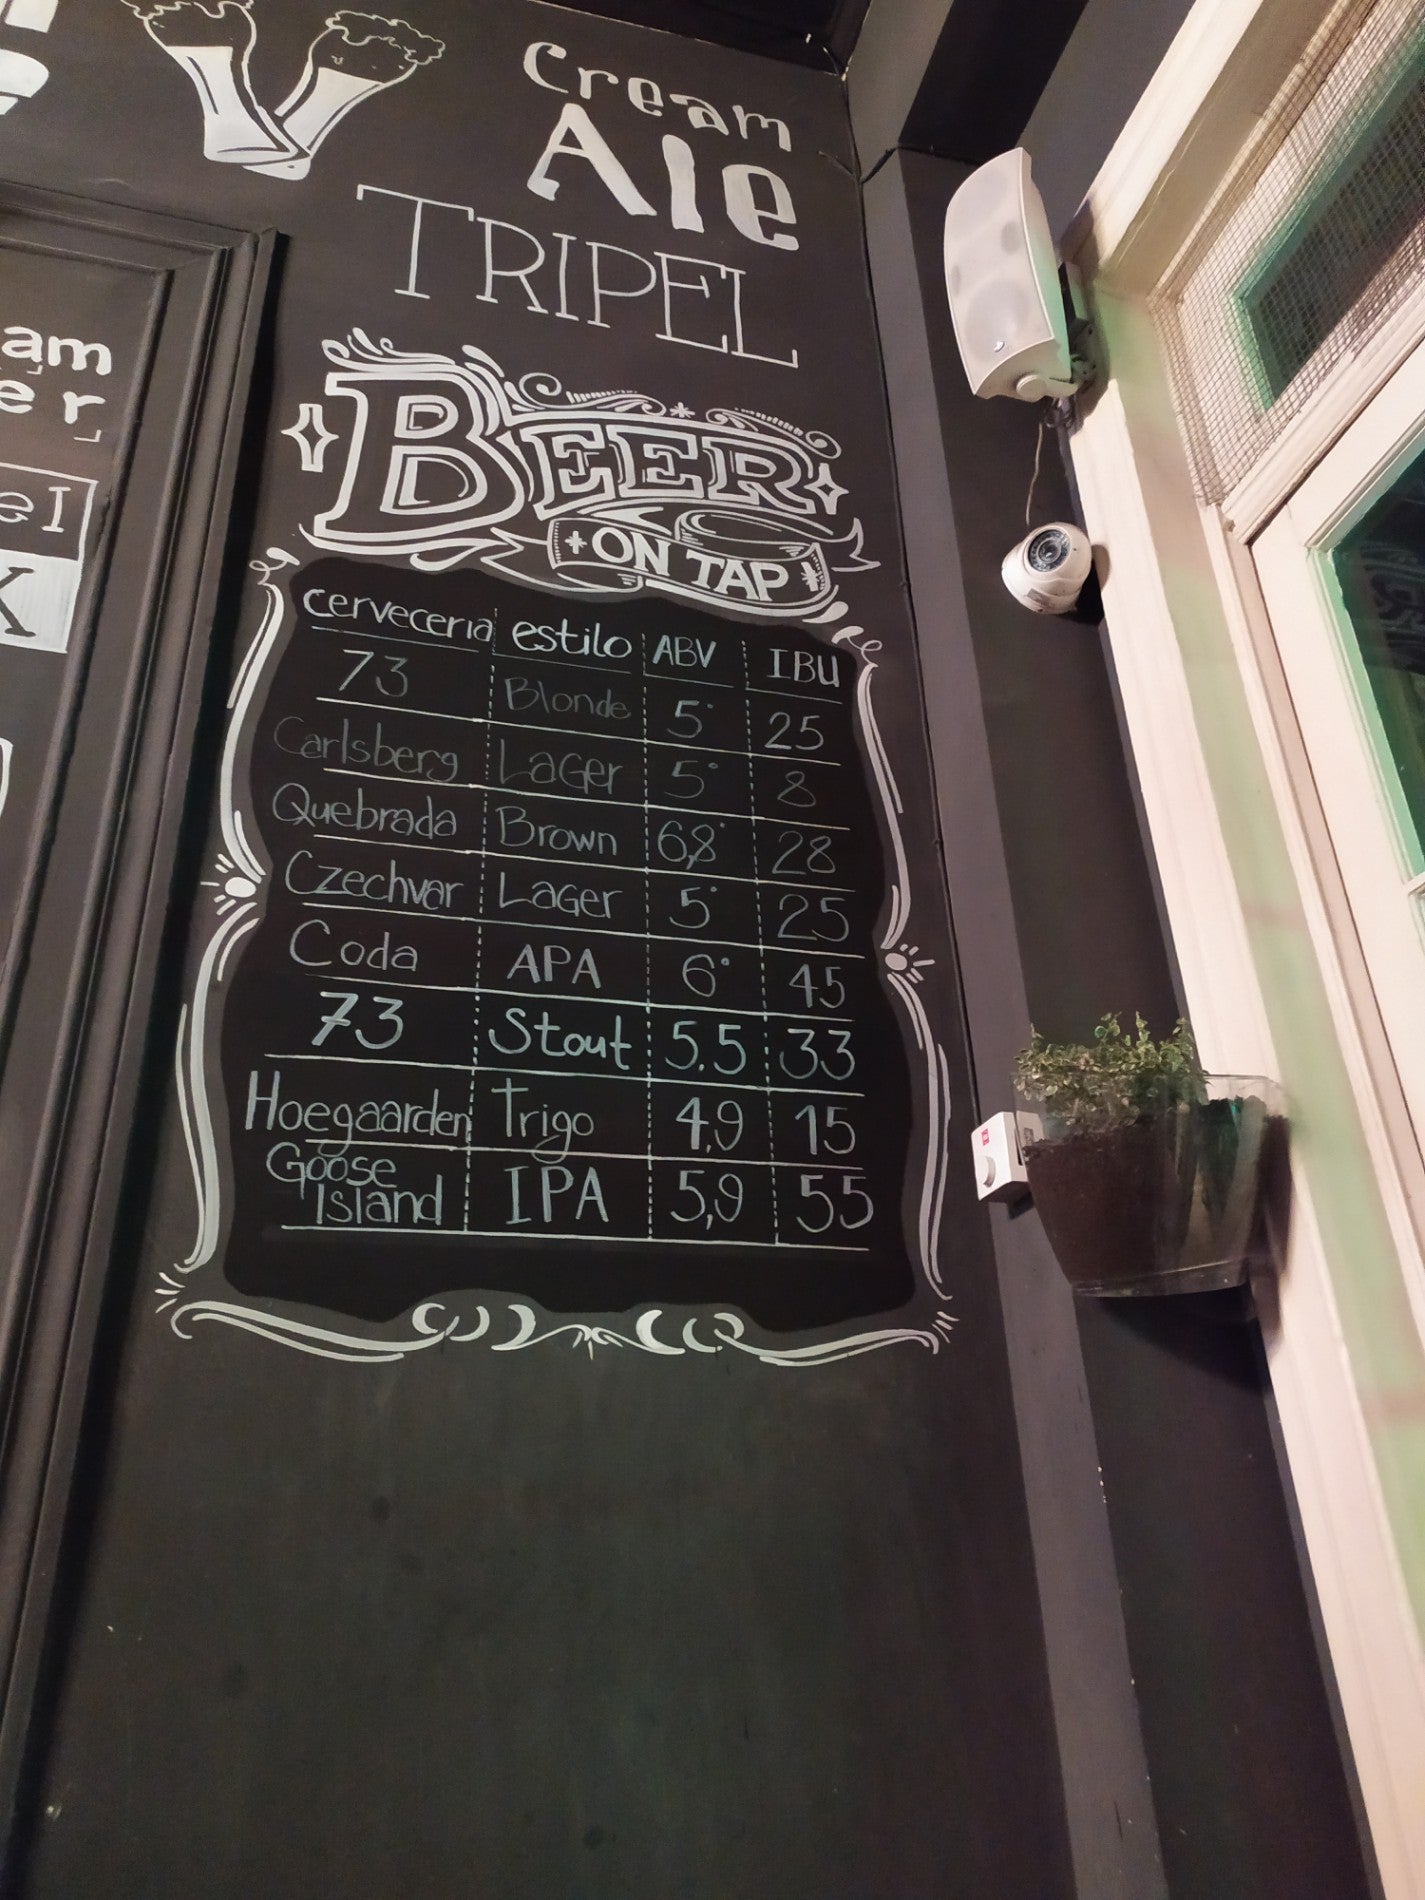 Cream
Ale
TRIPEL
am
er
el
K
BEER
ON TAP
cerveceria estilo ABV IBU
73 Blonde 5° 25
Carlsberg LaGer 5° 8
Quebrada Brown 6,8° 28
Czechvar LaGer 5° 25
Coda APA 6° 45
73 Stout 5.5 33
Hoegaarden Trigo 4,9 15
Goose
Island IPA 5,9 55